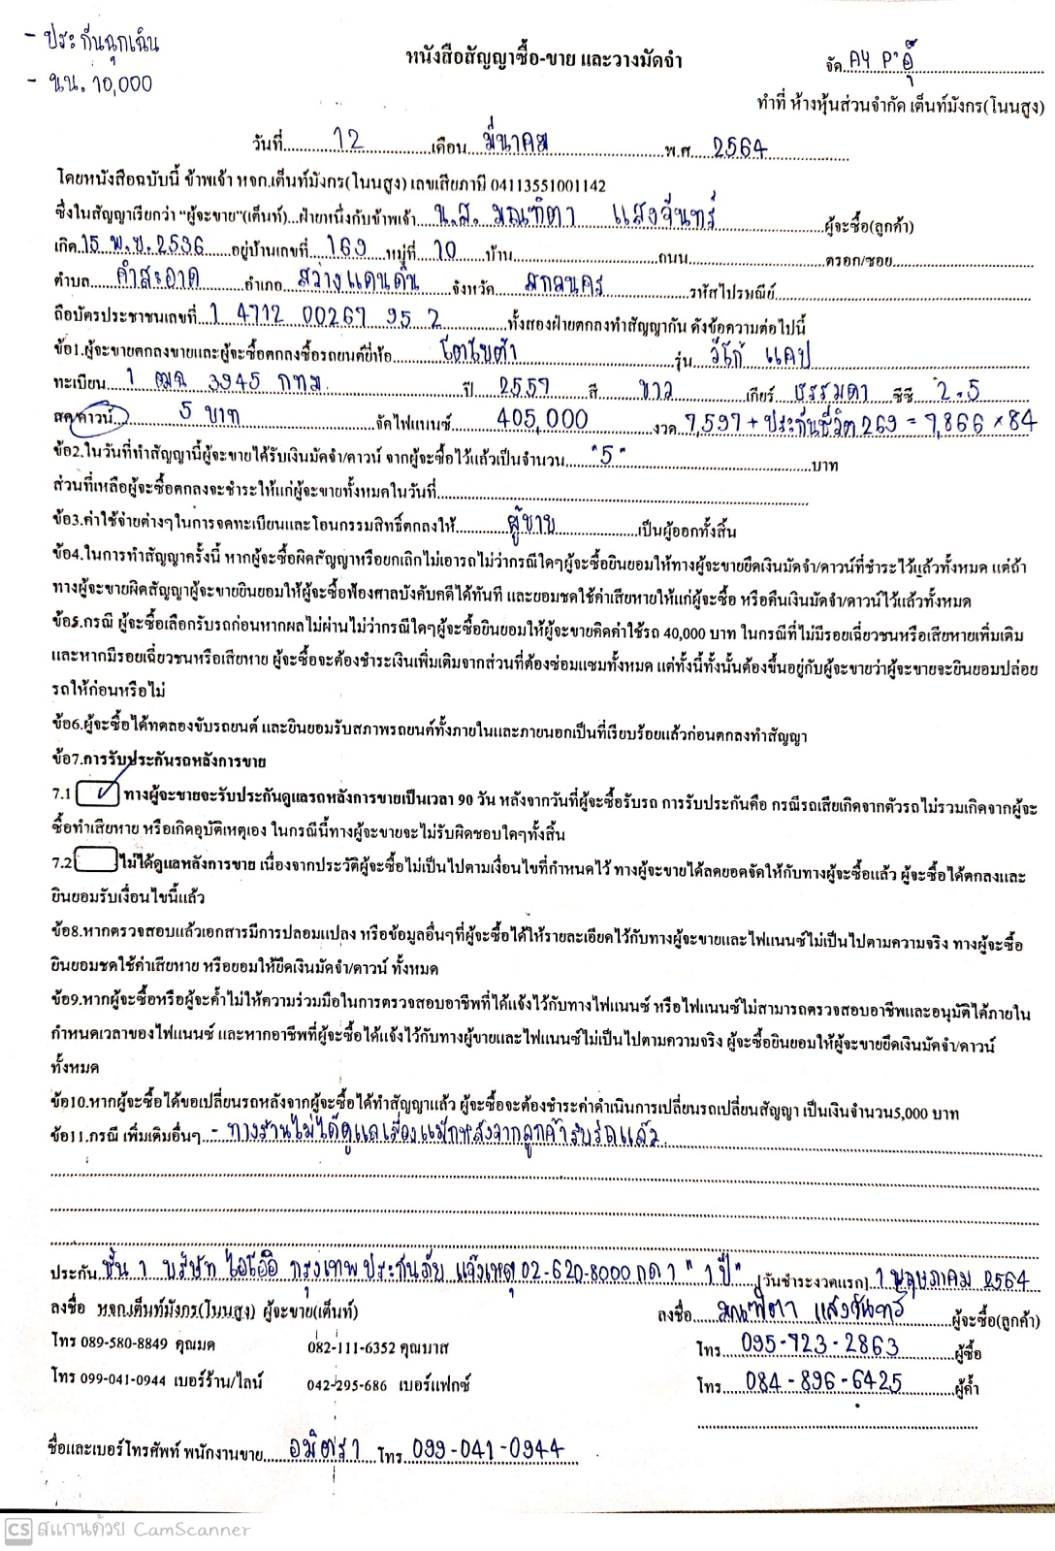 - ประกันฉุกเฉิน
- นน. 10,000
หนังสือสัญญาซื้อ-ขาย และวางมัดจำ
จัด AY P'อุ๋
ทำที่ ห้างหุ้นส่วนจำกัด เต็นท์มังกร(โนนสูง)
วันที่ 12 เดือน มีนาคม พ.ศ. 2564
โดยหนังสือฉบับนี้ ข้าพเจ้า หจก.เต็นท์มังกร(โนนสูง) เลขเสียภาษี 04113551001142
ซึ่งในสัญญาเรียกว่า "ผู้จะขาย"(เต็นท์)...ฝ่ายหนึ่งกับข้าพเจ้า น.ส. มณฑิตา แสงจันทร์ ผู้จะซื้อ(ลูกค้า)
เกิด 15 พ.ย. 2536 อยู่บ้านเลขที่ 169 หมู่ที่ 10 บ้าน ถนน ตรอก/ซอย
ตำบล คำสะอาด อำเภอ สว่างแดนดิน จังหวัด สกลนคร รหัสไปรษณีย์
ถือบัตรประชาชนเลขที่ 1 4712 00267 95 2 ทั้งสองฝ่ายตกลงทำสัญญากัน ดังข้อความต่อไปนี้
ข้อ1.ผู้จะขายตกลงขายและผู้จะซื้อตกลงซื้อรถยนต์ยี่ห้อ โตโยต้า รุ่น วีโก้ แคป
ทะเบียน 1 ฒฉ 3945 กทม. ปี 2557 สี ขาว เกียร์ ธรรมดา ซีซี 2.5
สด/ดาวน์ 5 บาท จัดไฟแนนซ์ 405,000 งวด 7,597 + ประกันชีวิต 269 = 7,866 × 84
ข้อ2.ในวันที่ทำสัญญานี้ผู้จะขายได้รับเงินมัดจำ/ดาวน์ จากผู้จะซื้อไว้แล้วเป็นจำนวน "5" บาท
ส่วนที่เหลือผู้จะซื้อตกลงจะชำระให้แก่ผู้จะขายทั้งหมดในวันที่
ข้อ3.ค่าใช้จ่ายต่างๆในการจดทะเบียนและโอนกรรมสิทธิ์ตกลงให้ ผู้ขาย เป็นผู้ออกทั้งสิ้น
ข้อ4.ในการทำสัญญาครั้งนี้ หากผู้จะซื้อผิดสัญญาหรือยกเลิกไม่เอารถไม่ว่ากรณีใดๆผู้จะซื้อยินยอมให้ทางผู้จะขายยึดเงินมัดจำ/ดาวน์ที่ชำระไว้แล้วทั้งหมด แต่ถ้า
ทางผู้จะขายผิดสัญญาผู้จะขายยินยอมให้ผู้จะซื้อฟ้องศาลบังคับคดีได้ทันที และยอมชดใช้ค่าเสียหายให้แก่ผู้จะซื้อ หรือคืนเงินมัดจำ/ดาวน์ไว้แล้วทั้งหมด
ข้อ5.กรณี ผู้จะซื้อเลือกรับรถก่อนหากผลไม่ผ่านไม่ว่ากรณีใดๆผู้จะซื้อยินยอมให้ผู้จะขายคิดค่าใช้รถ 40,000 บาท ในกรณีที่ไม่มีรอยเฉี่ยวชนหรือเสียหายเพิ่มเติม
และหากมีรอยเฉี่ยวชนหรือเสียหาย ผู้จะซื้อจะต้องชำระเงินเพิ่มเติมจากส่วนที่ต้องซ่อมแซมทั้งหมด แต่ทั้งนี้ทั้งนั้นต้องขึ้นอยู่กับผู้จะขายว่าผู้จะขายจะยินยอมปล่อย
รถให้ก่อนหรือไม่
ข้อ6.ผู้จะซื้อได้ทดลองขับรถยนต์ และยินยอมรับสภาพรถยนต์ทั้งภายในและภายนอกเป็นที่เรียบร้อยแล้วก่อนตกลงทำสัญญา
ข้อ7.การรับประกันรถหลังการขาย
7.1 ✓ ทางผู้จะขายจะรับประกันดูแลรถหลังการขายเป็นเวลา 90 วัน หลังจากวันที่ผู้จะซื้อรับรถ การรับประกันคือ กรณีรถเสียเกิดจากตัวรถไม่รวมเกิดจากผู้จะ
ซื้อทำเสียหาย หรือเกิดอุบัติเหตุเอง ในกรณีนี้ทางผู้จะขายจะไม่รับผิดชอบใดๆทั้งสิ้น
7.2 ไม่ได้ดูแลหลังการขาย เนื่องจากประวัติผู้จะซื้อไม่เป็นไปตามเงื่อนไขที่กำหนดไว้ ทางผู้จะขายได้ลดยอดจัดให้กับทางผู้จะซื้อแล้ว ผู้จะซื้อได้ตกลงและ
ยินยอมรับเงื่อนไขนี้แล้ว
ข้อ8.หากตรวจสอบแล้วเอกสารมีการปลอมแปลง หรือข้อมูลอื่นๆที่ผู้จะซื้อได้ให้รายละเอียดไว้กับทางผู้จะขายและไฟแนนซ์ไม่เป็นไปตามความจริง ทางผู้จะซื้อ
ยินยอมชดใช้ค่าเสียหาย หรือยอมให้ยึดเงินมัดจำ/ดาวน์ ทั้งหมด
ข้อ9.หากผู้จะซื้อหรือผู้จะค้ำไม่ให้ความร่วมมือในการตรวจสอบอาชีพที่ได้แจ้งไว้กับทางไฟแนนซ์ หรือไฟแนนซ์ไม่สามารถตรวจสอบอาชีพและอนุมัติได้ภายใน
กำหนดเวลาของไฟแนนซ์ และหากอาชีพที่ผู้จะซื้อได้แจ้งไว้กับทางผู้ขายและไฟแนนซ์ไม่เป็นไปตามความจริง ผู้จะซื้อยินยอมให้ผู้จะขายยึดเงินมัดจำ/ดาวน์
ทั้งหมด
ข้อ10.หากผู้จะซื้อได้ขอเปลี่ยนรถหลังจากผู้จะซื้อได้ทำสัญญาแล้ว ผู้จะซื้อจะต้องชำระค่าดำเนินการเปลี่ยนรถเปลี่ยนสัญญา เป็นเงินจำนวน5,000 บาท
ข้อ11.กรณี เพิ่มเติมอื่นๆ - ทางร้านไม่ได้ดูแลเรื่องแม็กหลังจากลูกค้ารับรถแล้ว
ประกัน ชั้น 1 บริษัท ไอโออิ กรุงเทพ ประกันภัย แจ้งเหตุ 02-620-8000 กด 1 "1 ปี" (วันชำระงวดแรก) 1 พฤษภาคม 2564
ลงชื่อ หจก.เต็นท์มังกร(โนนสูง) ผู้จะขาย(เต็นท์) ลงชื่อ มณฑิตา แสงจันทร์ ผู้จะซื้อ(ลูกค้า)
โทร 089-580-8849 คุณมด 082-111-6352 คุณบาส โทร 095-723-2863 ผู้ซื้อ
โทร 099-041-0944 เบอร์ร้าน/ไลน์ 042-295-686 เบอร์แฟกซ์ โทร 084-896-6425 ผู้ค้ำ
ชื่อและเบอร์โทรศัพท์ พนักงานขาย อมิตรา โทร 099-041-0944
CS สแกนด้วย CamScanner